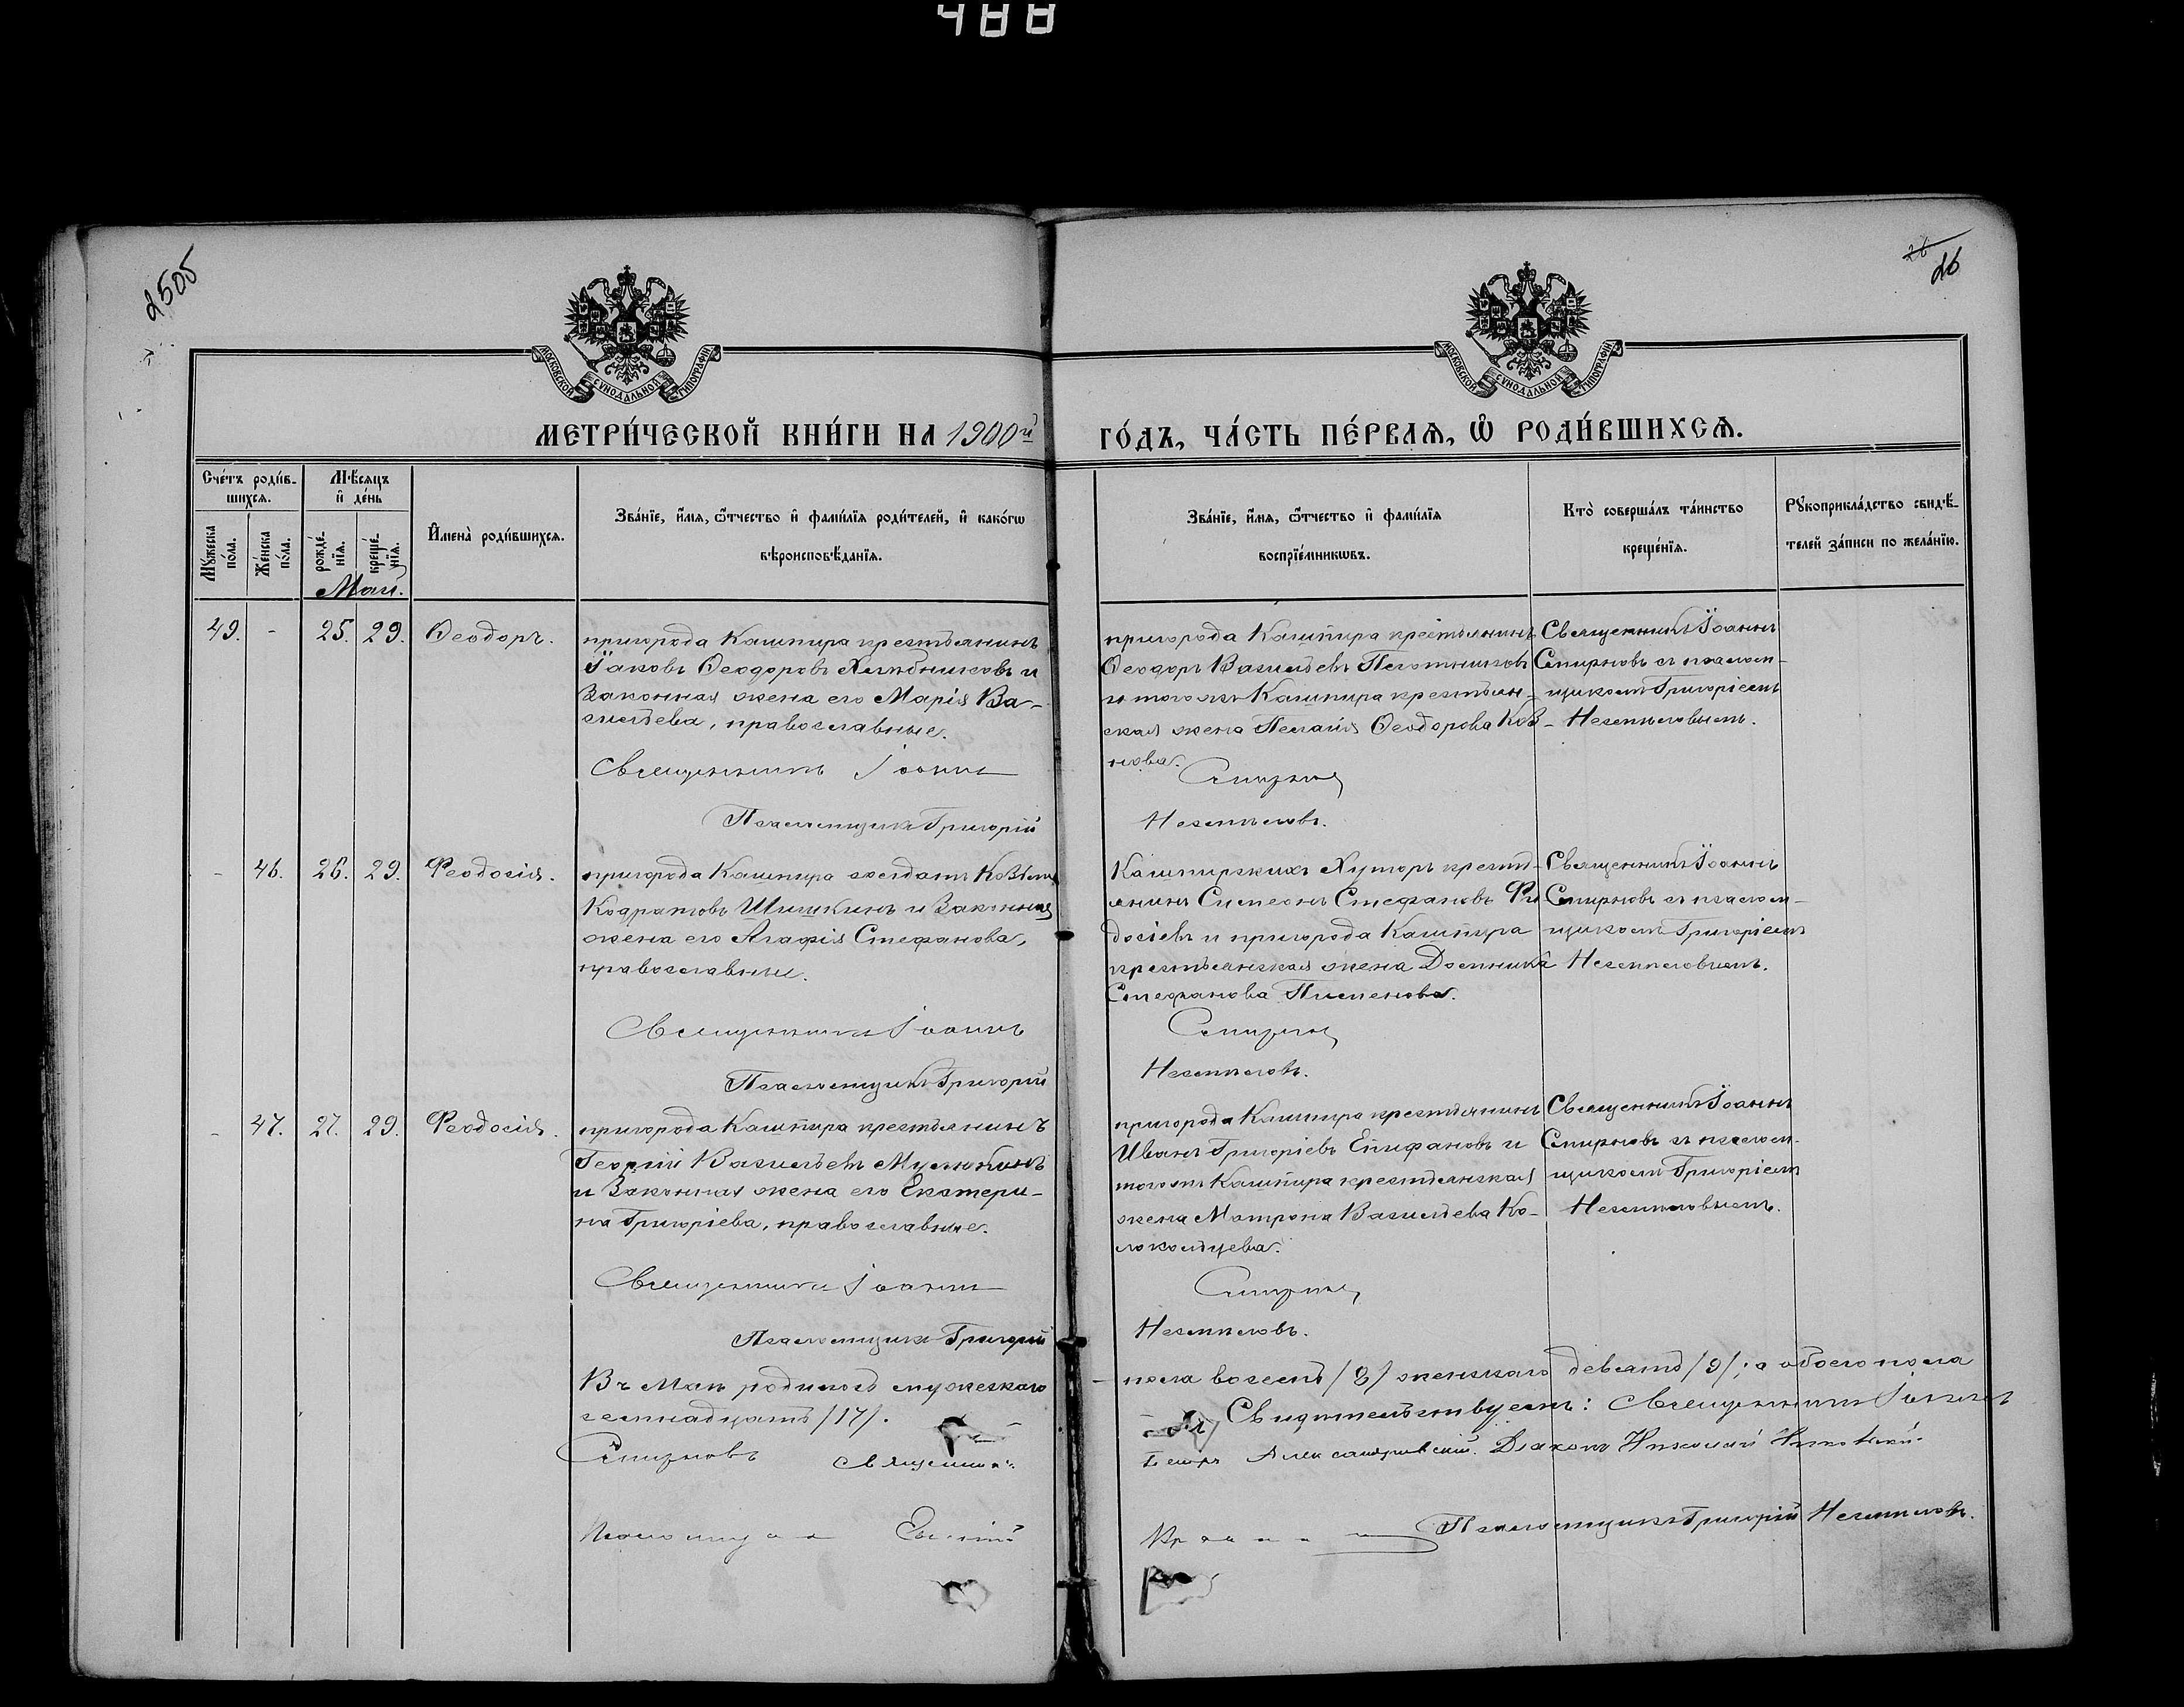 488
2505
26
26
МОСКОВСКОЙ СѴНОДАЛЬНОЙ ТИПОГРАФІИ
МОСКОВСКОЙ СѴНОДАЛЬНОЙ ТИПОГРАФІИ
МЕТРИ́ЧЕСКОЙ КНИ́ГИ НА 1900й ГО́ДЪ, ЧА́СТЬ ПЕ́РВАѦ, Ѡ҆ РОДИ́ВШИХСѦ.
Сче́тъ роди́в-
шихсѧ.
Мꙋ́жеска по́ла.
Же́нска по́ла.
Мѣ́сяцъ и҆ де́нь
рожде́-нїѧ.
креще́-нїѧ.
Май.
И҆мена̀ роди́вшихсѧ.
Зва́нїе, и҆́мѧ, ѻ҆́тчество и҆ фами́лїѧ роди́телей, и҆ како́гѡ
вѣроисповѣ́данїѧ.
Зва́нїе, и҆́мѧ, ѻ҆́тчество и҆ фами́лїѧ
воспрїе́мникѡвъ.
Кто̀ соверша́лъ та́инство
креще́нїѧ.
Рꙋкоприкла́дство свидѣ́-
телей за́писи по жела́нїю.
49. - 25. 29. Ѳеодоръ.
пригорода Кашпира крестьянинъ
Іаковъ Ѳеодоровъ Хлѣбниковъ и
законная жена его Марія Ва-
сильева, православные.
Священникъ Іоаннъ
Псаломщикъ Григорій
пригорода Кашпира крестьянинъ
Ѳеодоръ Васильевъ Плотниковъ
и того же Кашпира крестьян-
ская жена Пелагія Ѳеодорова
нова.
Смирновъ
Несмѣловъ.
Священникъ Іоаннъ
Смирновъ съ псалом-
щикомъ Григоріемъ
Несмѣловымъ.
- 46. 26. 29. Феодосія.
пригорода Кашпира солдатъ Козьма
Кодратовъ Шишкинъ и законная
жена его Агафія Стефанова,
православные.
Священникъ Іоаннъ
Псаломщикъ Григорій
Кашпирскихъ Хуторъ кресть-
янинъ Симеонъ Стефановъ Фи
досіевъ и пригорода Кашпира
крестьянская жена Домника
Стефанова Пименова.
Смирновъ
Несмѣловъ.
Священникъ Іоаннъ
Смирновъ съ псалом-
щикомъ Григоріемъ
Несмѣловымъ.
- 47. 27. 29. Феодосія.
пригорода Кашпира крестьянинъ
Георгій Васильевъ Мулюкинъ
и законная жена его Екатери-
на Григоріева, православные.
Священникъ Іоаннъ
Псаломщикъ Григорій
пригорода Кашпира крестьянинъ
Иванъ Григоріевъ Епифановъ и
того же Кашпира крестьянская
жена Матрона Васильева Ко-
локольцева.
Смирновъ
Несмѣловъ.
Священникъ Іоаннъ
Смирновъ съ псалом-
щикомъ Григоріемъ
Несмѣловымъ.
Въ Маѣ родилось мужескаго пола восемь /8/ женскаго девять /9/; а обоего пола
семнадцать /17/. Свидѣтельствуемъ: Священникъ Іоаннъ
Смирновъ Священникъ Петръ Александровскій. Діаконъ Николай
Псаломщикъ Евгеній
Псаломщикъ Григорій Несмѣловъ.